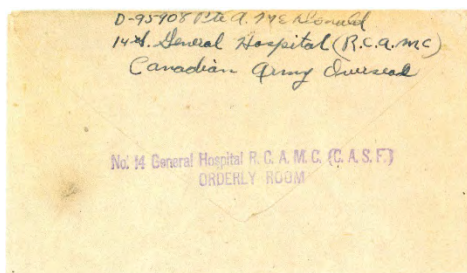 D-95908 Pte A. McDonald
14th. General Hospital (R.C.A.M.C)
Canadian Army Overseas
No. 14 General Hospital R. C. A. M. C. (C. A. S. F.)
ORDERLY ROOM